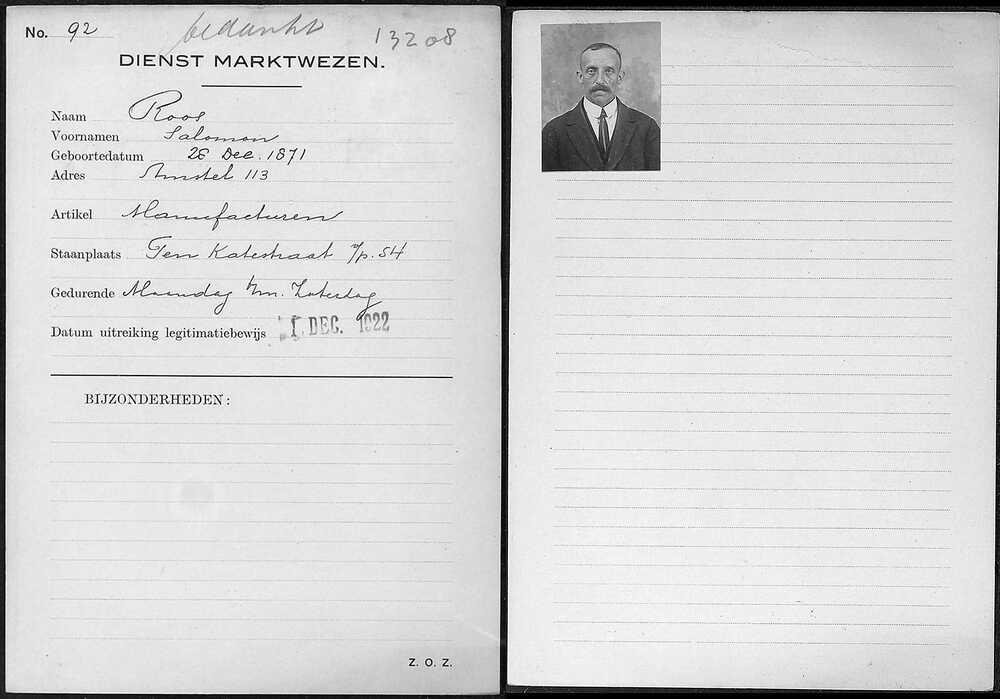 No. 92 bedankt 13208
DIENST MARKTWEZEN.
Naam Roos
Voornamen Salomon
Geboortedatum 26 Dec. 1871
Adres Amstel 113
Artikel Manufacturen
Staanplaats Ten Katestraat v/p. 54
Gedurende Maandag t/m. Zaterdag
Datum uitreiking legitimatiebewijs 1 DEC. 1922
BIJZONDERHEDEN:
Z. O. Z.